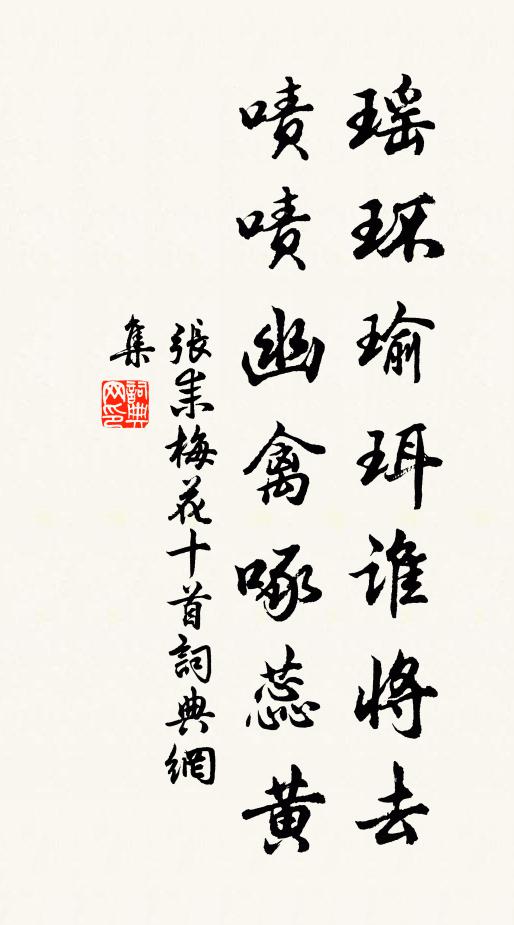 瑶环瑜珥谁将去
啧啧幽禽啄蕊黄
張耒梅花十首詞典網
集
詞典
网印